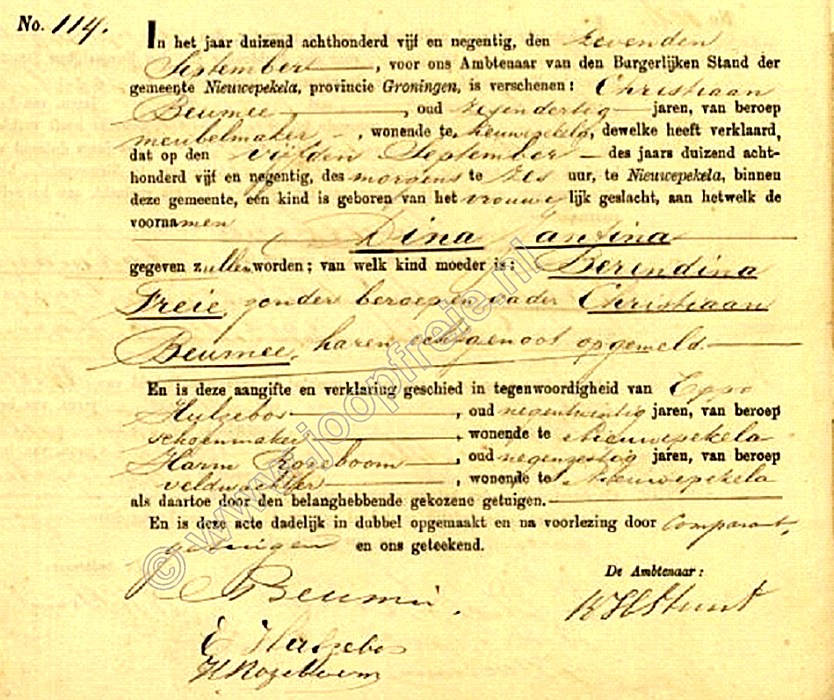 No. 114.
In het jaar duizend achthonderd vijf en negentig, den zevenden
September, voor ons Ambtenaar van den Burgerlijken Stand der
gemeente Nieuwepekela, provincie Groningen, is verschenen: Christiaan
Beumee, oud zesendertig jaren, van beroep
meubelmaker, wonende te Nieuwepekela, dewelke heeft verklaard,
dat op den vijfden September des jaars duizend acht-
honderd vijf en negentig, des morgens te zes uur, te Nieuwepekela, binnen
deze gemeente, een kind is geboren van het vrouwelijk geslacht, aan hetwelk de
voornamen
Dina Jantina
gegeven zullen worden; van welk kind moeder is: Berendina
Freie, zonder beroep en vader Christiaan
Beumee, haren echtgenoot opgemeld
En is deze aangifte en verklaring geschied in tegenwoordigheid van Eppo
Hulzebos, oud negentwintig jaren, van beroep
schoenmaker, wonende te Nieuwepekela
Harm Rozeboom, oud jaren, van beroep
veldwachter, wonende te Nieuwepekela
als daartoe door den belanghebbende gekozene getuigen.
En is deze acte dadelijk in dubbel opgemaakt en na voorlezing door Comparant,
getuigen en ons geteekend.
De Ambtenaar:
Beumee
E Hulzebos
H Rozeboom
© www.joopfreie.nl